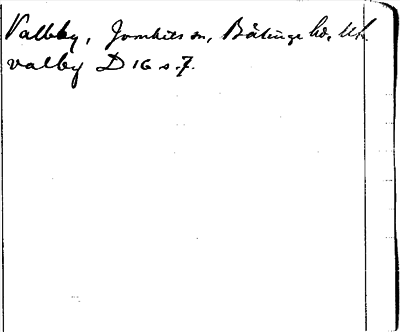 Valby, Jomkils sn, Bälinge hd, Upl.
valby D 16 s. 7.